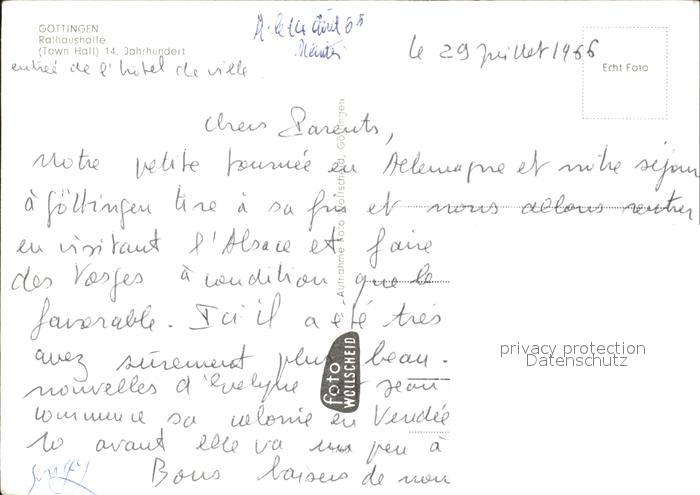 GÖTTINGEN
Rathaushalle
(Town Hall) 14. Jahrhundert
entrée de l'hôtel de ville
le 29 juillet 1966
Echt Foto
Chers Parents,
Notre petite tournée en Allemagne et notre séjour
à Göttingen tire à sa fin et nous allons rentrer
en visitant l'Alsace et faire
des Vosges à condition que le
favorable. Ici il a été très
avez sûrement plus beau.
nouvelles d'Evelyne et Jean
commence sa colonie en Vendée
10 avant elle va un peu à
Bons baisers de nou
Aufnahme Foto Wollscheid, Göttingen
foto WOLLSCHEID
privacy protection
Datenschutz